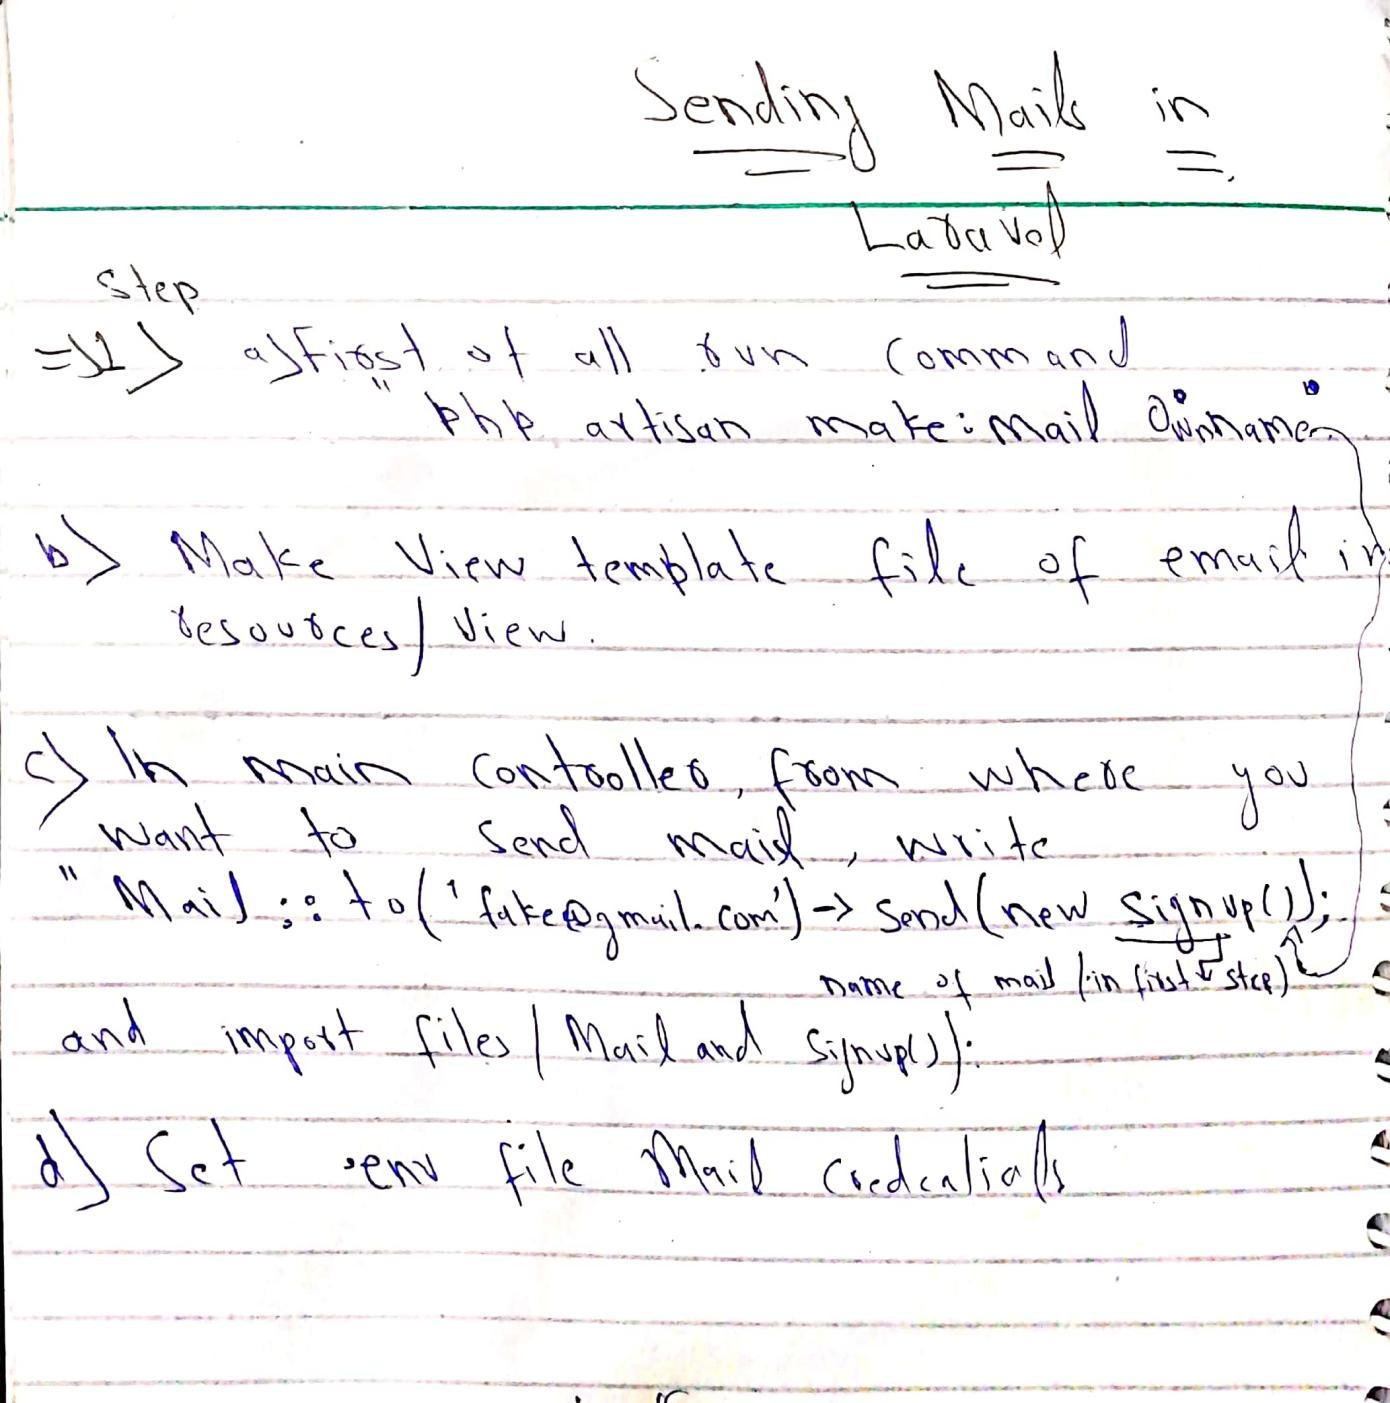 Sending Mails in
Laravel
Step
=> 1> a) First of all run command
" php artisan make:mail Ownname"
b> Make View template file of email in
resources/view.
c) In main controller, from where you
want to send mail, write
" Mail::to('fake@gmail.com')->send(new signup());
name of mail (in first step)
and import files / Mail and signup()).
d) Set .env file Mail credentials